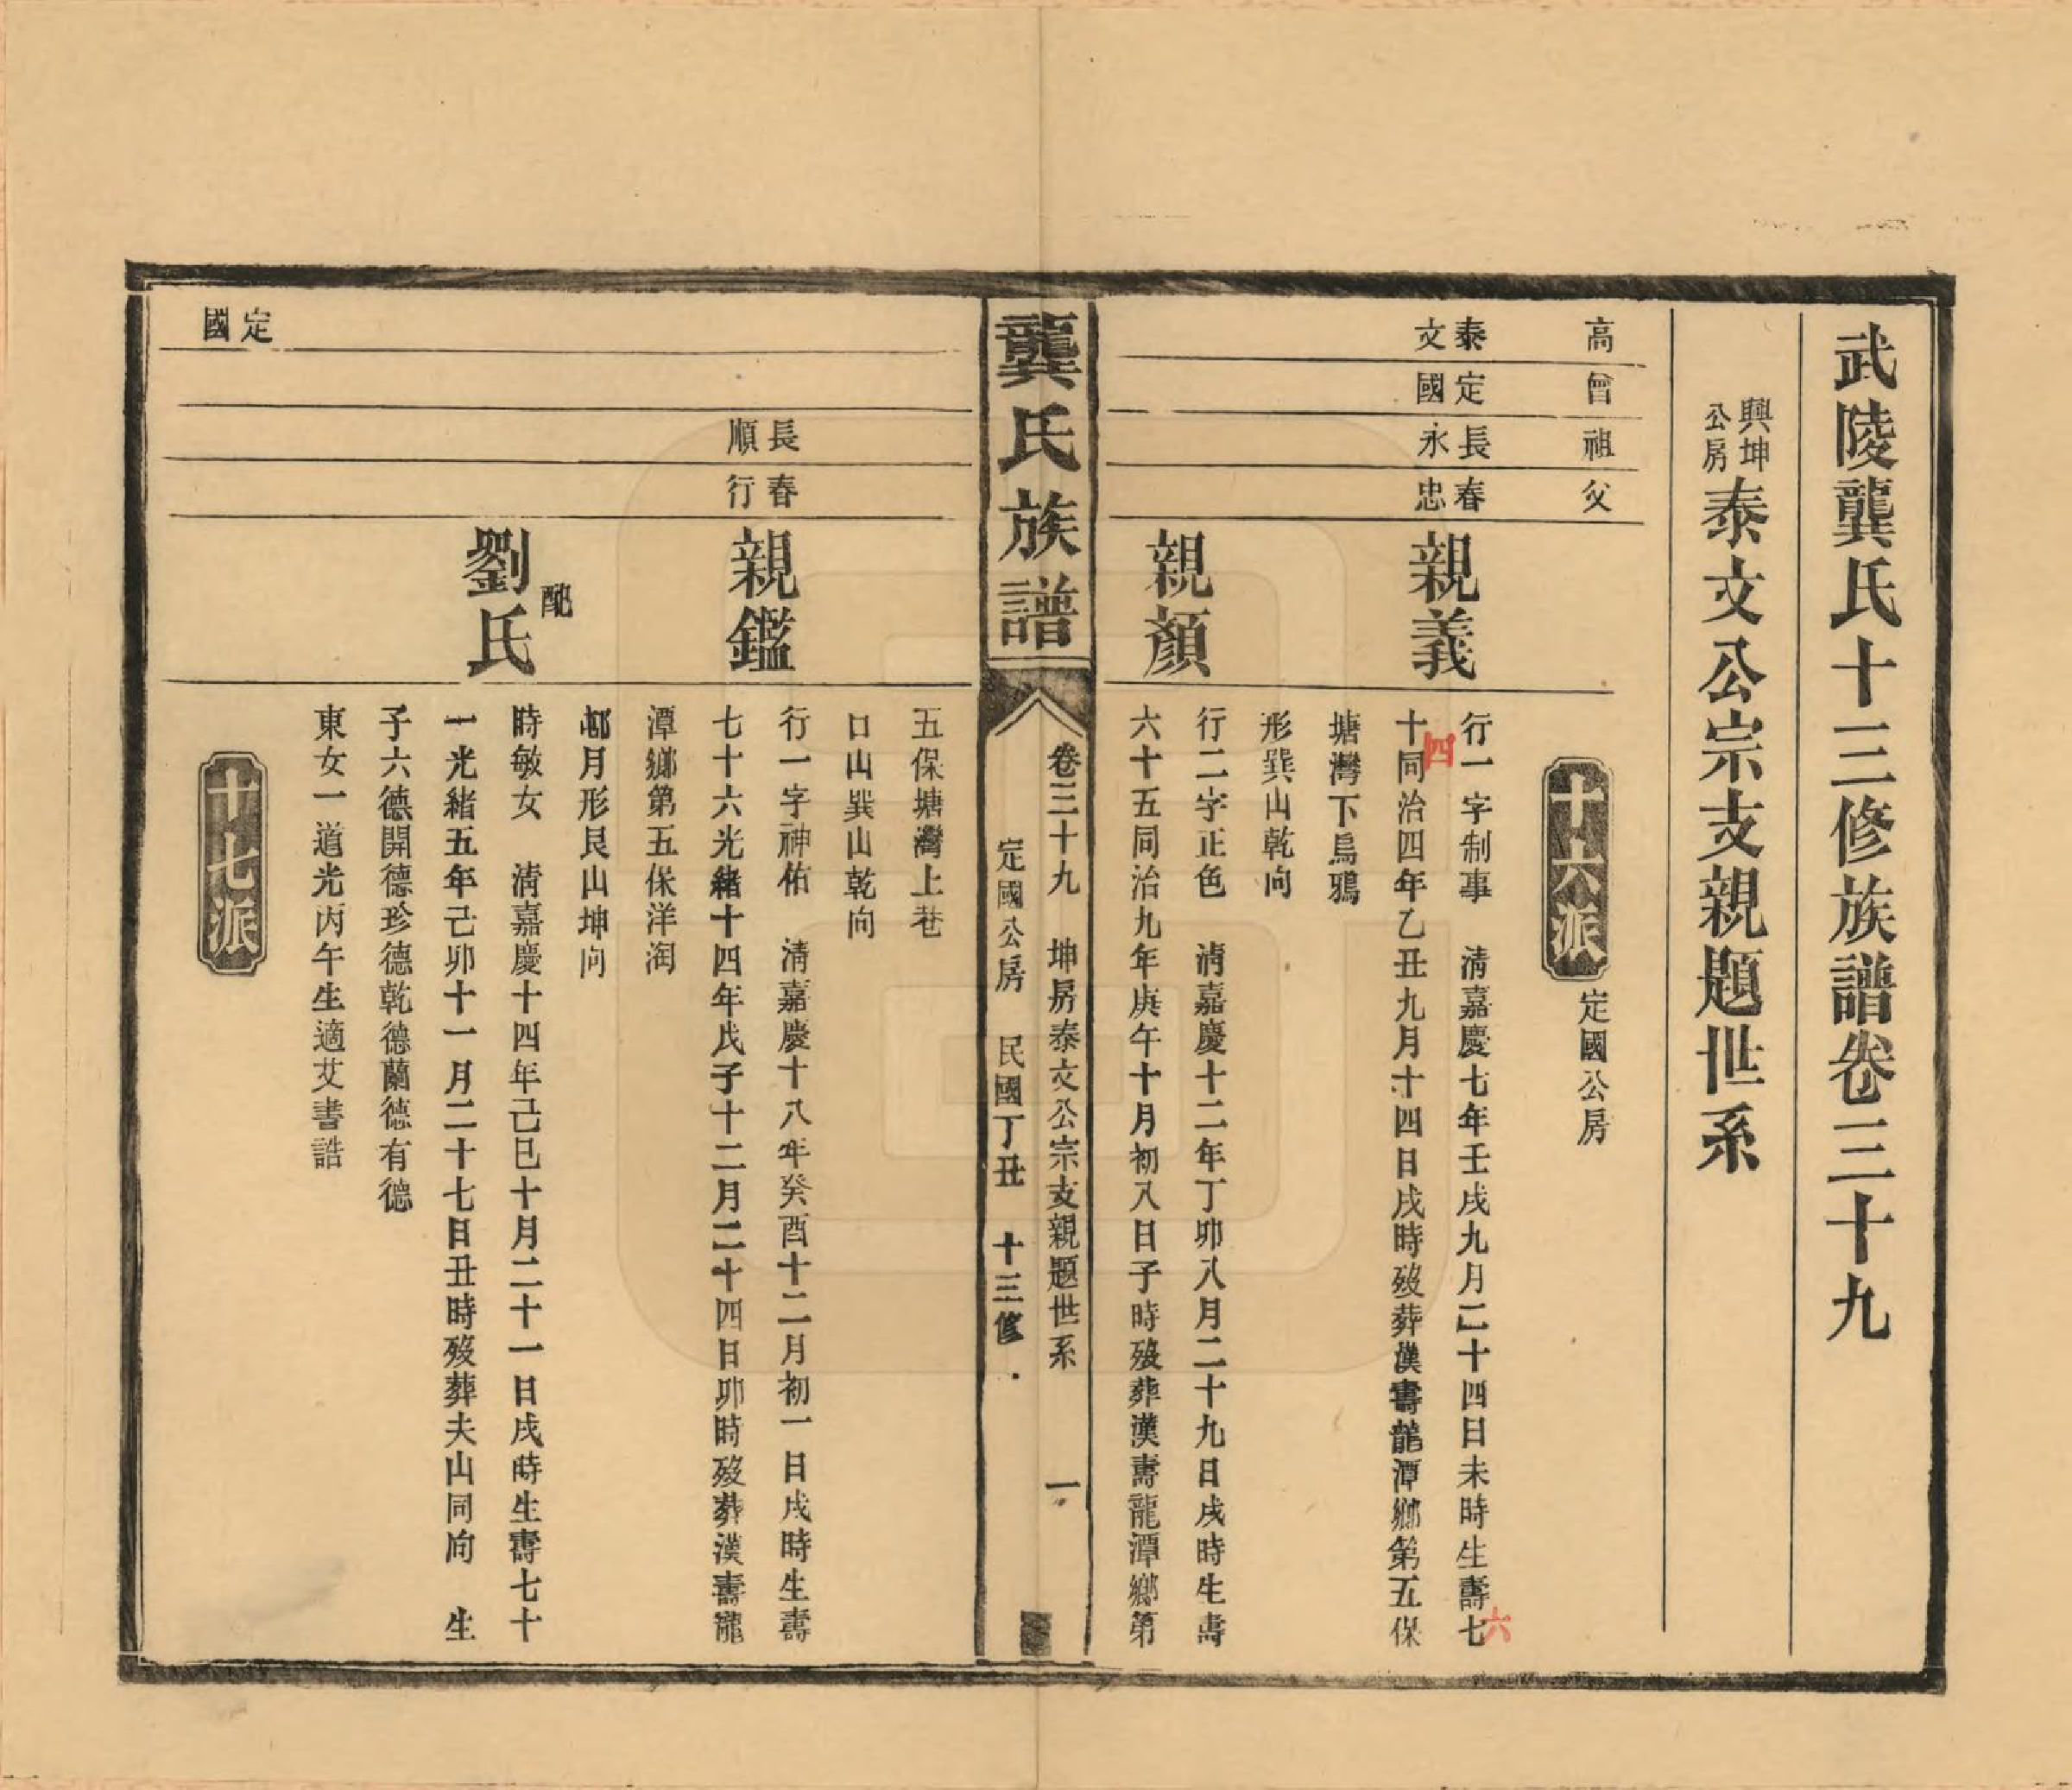 武陵龔氏十三修族譜卷三十九
興坤公房泰文公宗支親題世系
高
曾
祖
父
十六派
定國公房
泰文
定國
長永
春忠
親義
行一字制事　清嘉慶七年壬戌九月二十四日未時生壽七
六
四
十同治四年乙丑九月十四日戌時歿葬漢壽龍潭鄉第五保
塘灣下烏鴉
形巽山乾向
親顏
行二字正色　清嘉慶十二年丁卯八月二十九日戌時生壽
六十五同治九年庚午十月初八日子時歿葬漢壽龍潭鄉第
龔氏族譜
卷三十九　坤房泰文公宗支親題世系　一
定國公房　民國丁丑　十三修
五保塘灣上巷
口山巽山乾向
長順
春行
親鑑
行一字神佑　清嘉慶十八年癸酉十二月初一日戌時生壽
七十六光緒十四年戊子十二月二十四日卯時歿葬漢壽龍
潭鄉第五保洋淘
邨月形艮山坤向
配
劉氏
時敏女　清嘉慶十四年己巳十月二十一日戌時生壽七十
一光緒五年己卯十一月二十七日丑時歿葬夫山同向　生
子六德開德珍德乾德蘭德有德
東女一道光丙午生適艾書誥
定國
十七派